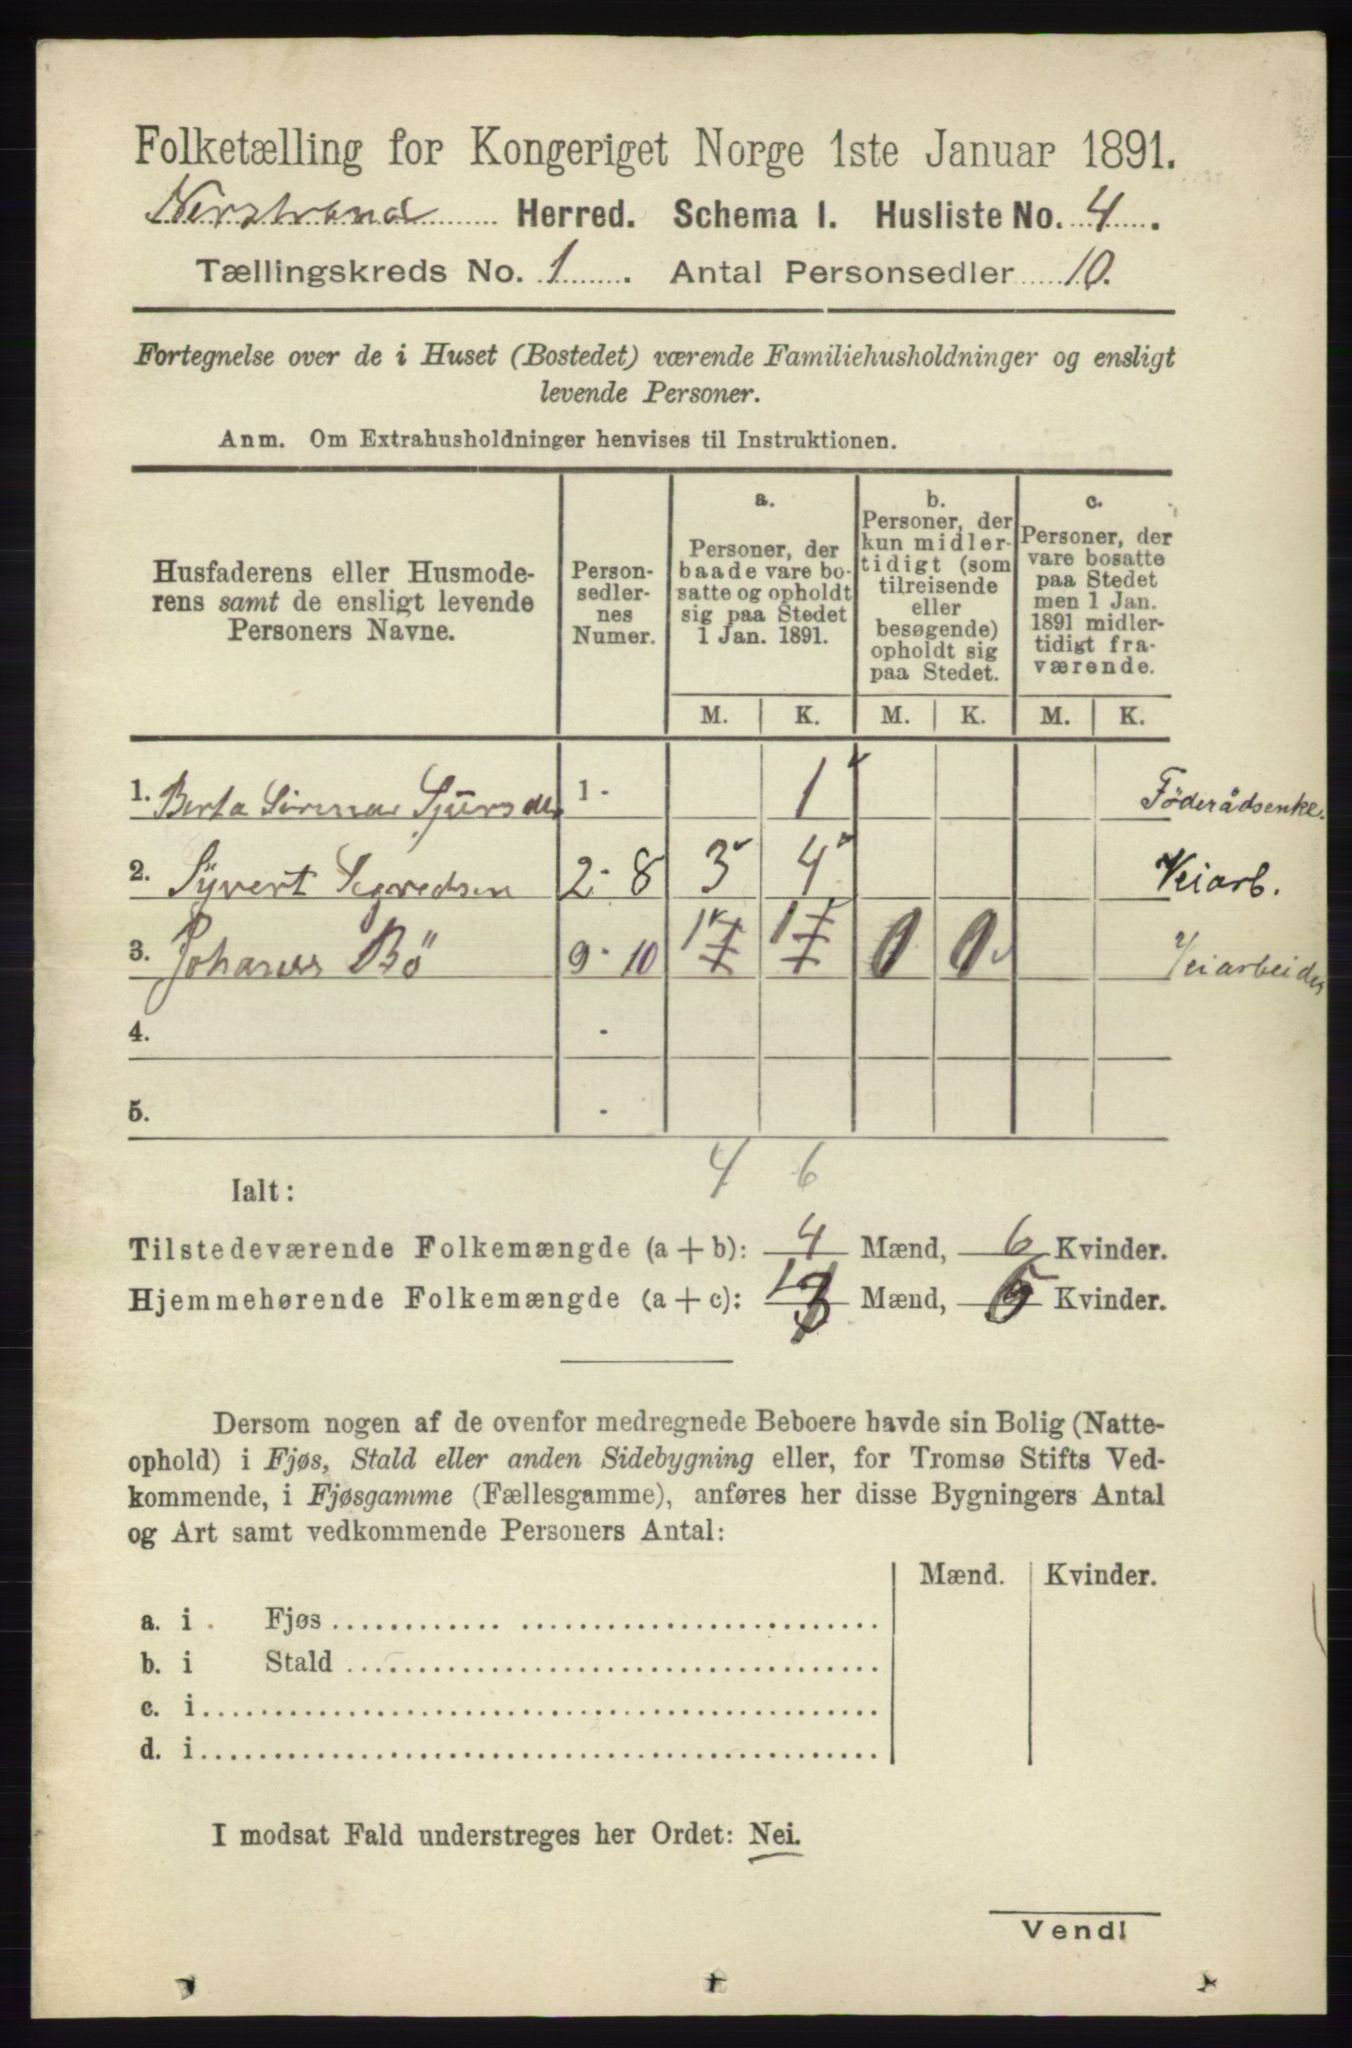 Folketælling for Kongeriget Norge 1ste Januar 1891.
Nerstrand Herred. Schema I. Husliste No. 4.
Tællingskreds No. 1. Antal Personsedler 10.
Fortegnelse over de i Huset (Bostedet) værende Familiehusholdninger og ensligt
levende Personer.
Anm. Om Extrahusholdninger henvises til Instruktionen.
Husfaderens eller Husmode-
rens samt de ensligt levende
Personers Navne.
Person-
sedler-
nes
Numer.
a.
Personer, der
baade vare bo-
satte og opholdt
sig paa Stedet
1 Jan. 1891.
b.
Personer, der
kun midler-
tidigt (som
tilreisende
eller
besøgende)
opholdt sig
paa Stedet.
c.
Personer, der
vare bosatte
paa Stedet
men 1 Jan.
1891 midler-
tidigt fra-
værende.
M. K. M. K. M. K.
1. Berta 1 - 1 Föderådsenke.
2. Syvert 2 - 8 3 4 Veiarb.
3. Johanes Bö 9 - 10 1 1 0 0 Veiarbeider
4. -
5. -
4 6
Ialt:
Tilstedeværende Folkemængde (a + b): 4 Mænd, 6 Kvinder.
Hjemmehørende Folkemængde (a + c): Mænd, Kvinder.
Dersom nogen af de ovenfor medregnede Beboere havde sin Bolig (Natte-
ophold) i Fjøs, Stald eller anden Sidebygning eller, for Tromsø Stifts Ved-
kommende, i Fjøsgamme (Fællesgamme), anføres her disse Bygningers Antal
og Art samt vedkommende Personers Antal:
Mænd. Kvinder.
a. i Fjøs
b. i Stald
c. i
d. i
I modsat Fald understreges her Ordet: Nei.
Vend!